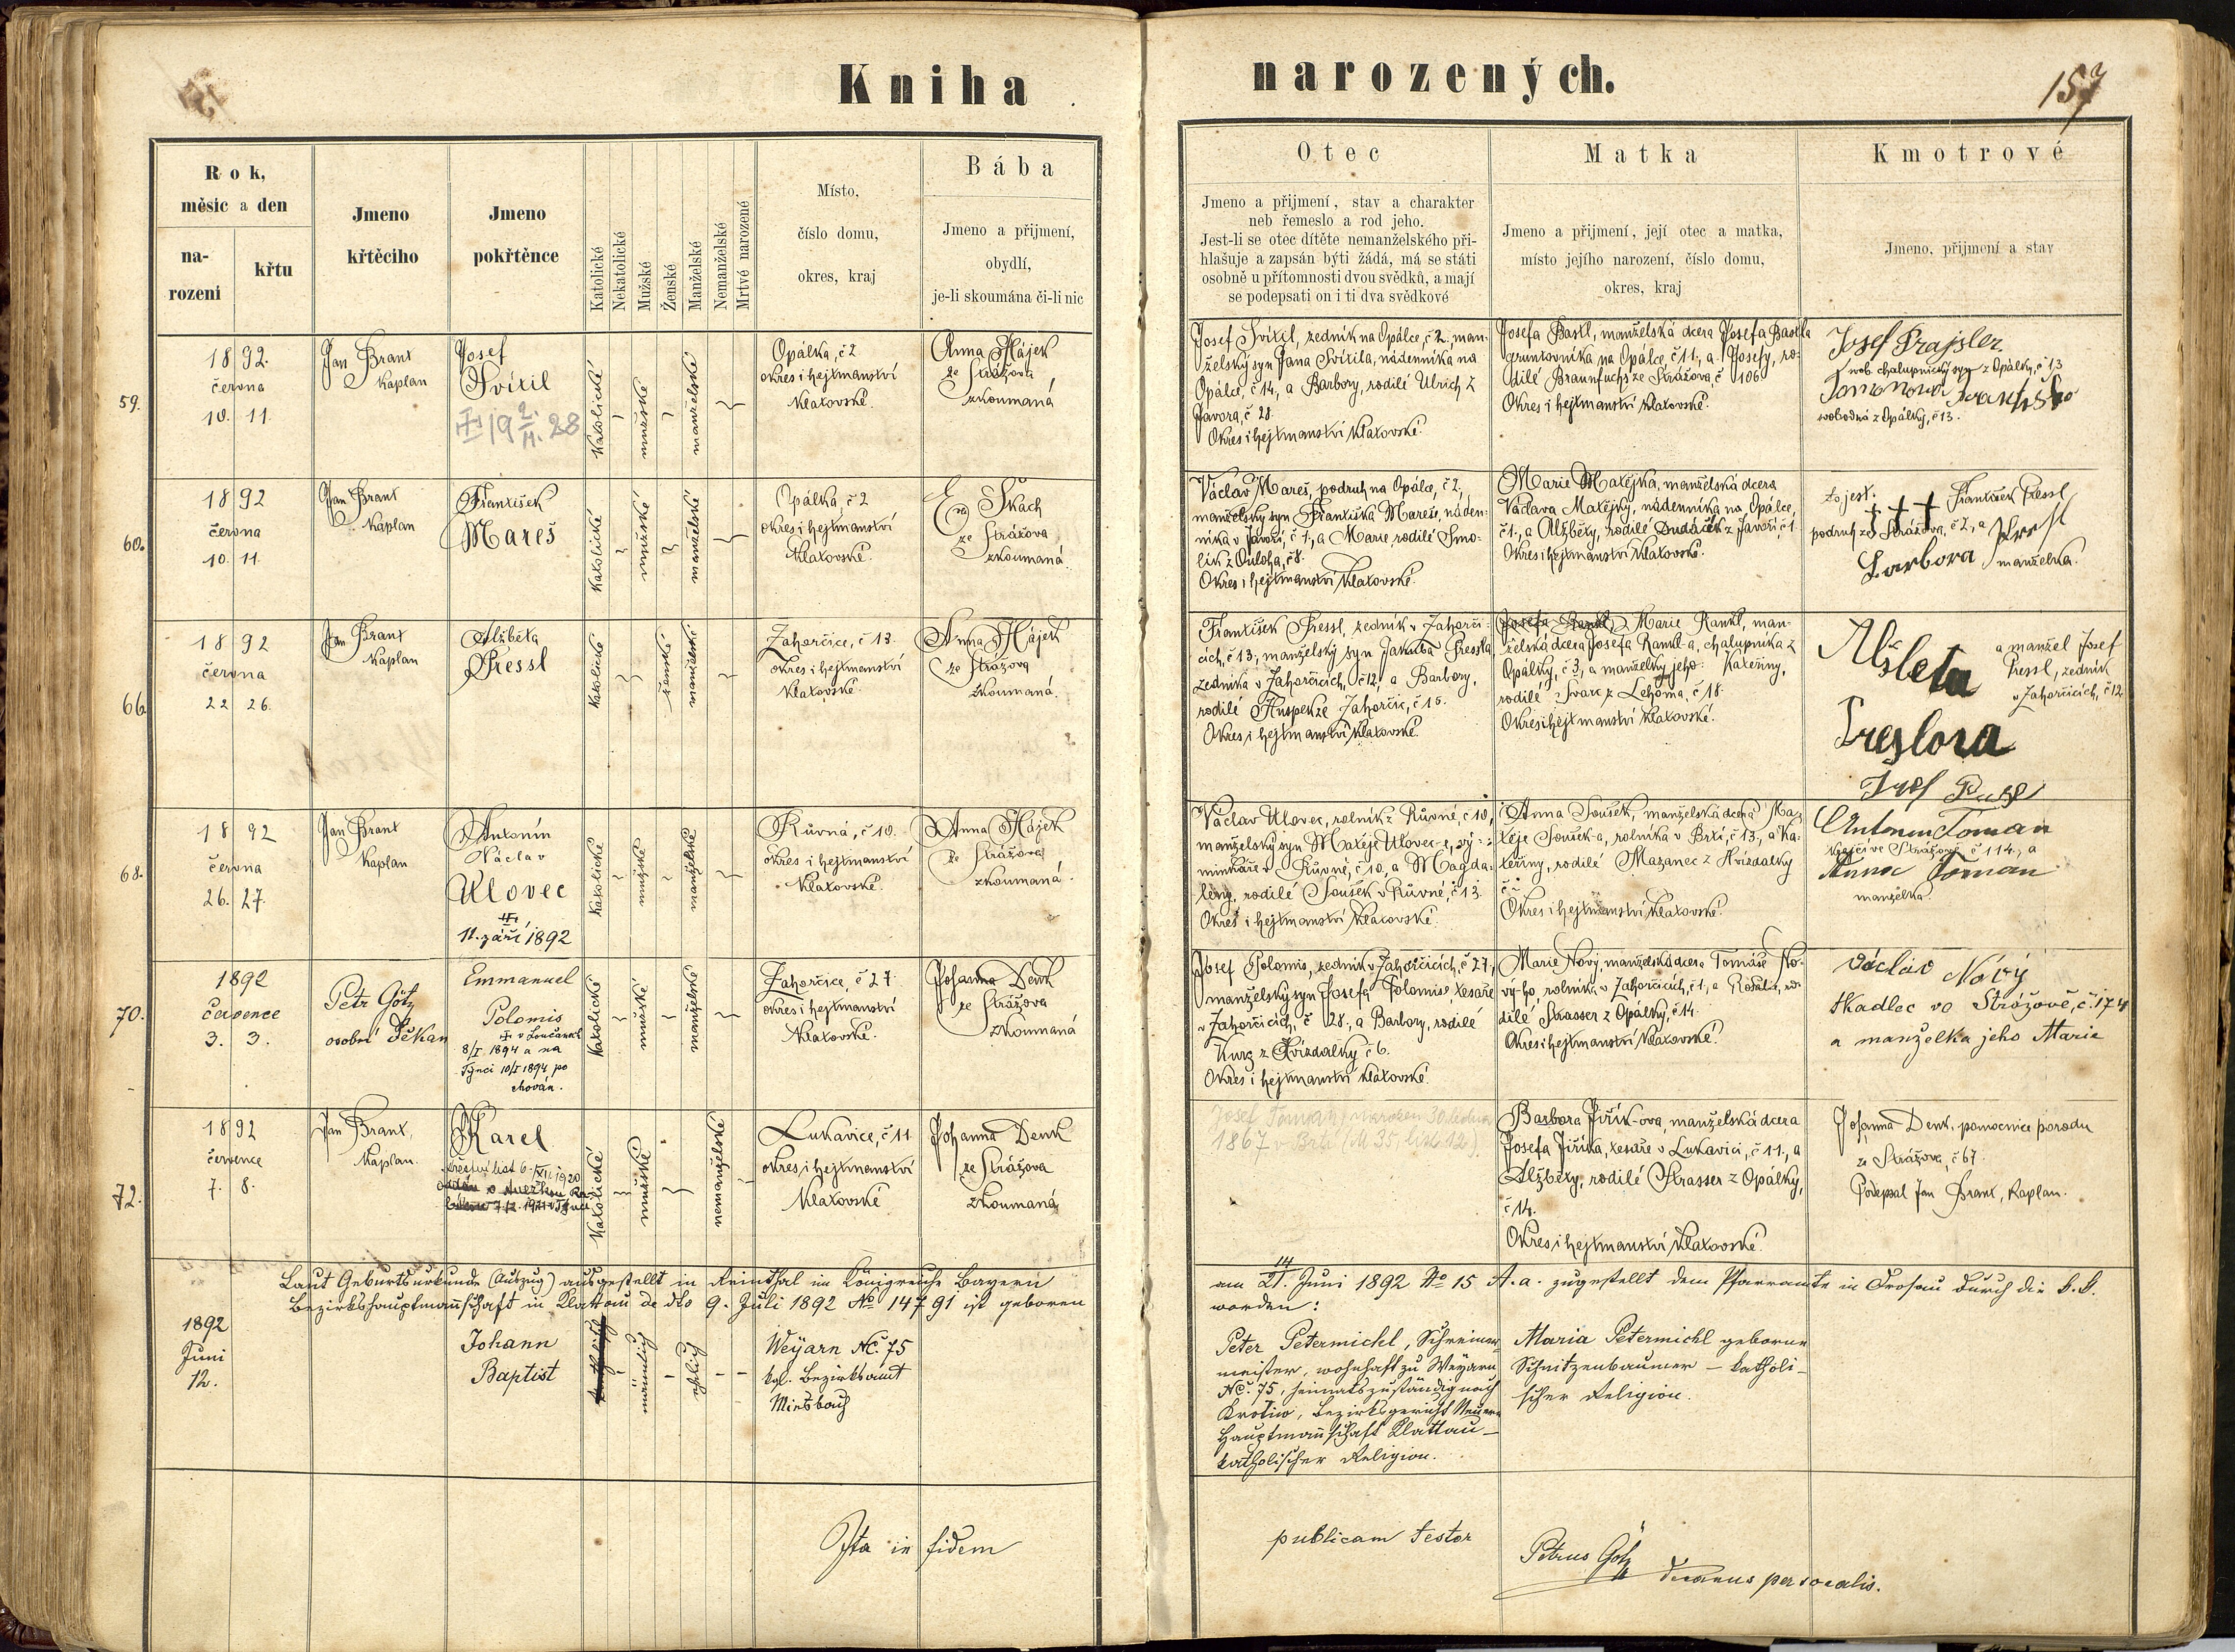 Kniha narozených.
157
Rok,
měsíc a den
na-
rození
křtu
Jmeno
křtěcího
Jmeno
pokřtěnce
Katolické
Nekatolické
Mužské
Ženské
Manželské
Nemanželské
Mrtvé narozené
Místo,
číslo domu,
okres, kraj
Bába
Jmeno a přijmení,
obydlí,
je-li skoumána či-li nic
Otec
Jmeno a přijmení, stav a charakter
neb řemeslo a rod jeho.
Jest-li se otec dítěte nemanželského při-
hlašuje a zapsán býti žádá, má se státi
osobně u přítomnosti dvou svědků, a mají
se podepsati on i ti dva svědkové
Matka
Jmeno a přijmení, její otec a matka,
místo jejího narození, číslo domu,
okres, kraj
Kmotrové
Jmeno, přijmení a stav
59.
1892.
června
10. 11.
Jan Brant
Kaplan
Josef
Svítil
19 2/11. 28
katolické
mužské
manželské
Opálka, č 2
okres i hejtmanství
Klatovské.
Anna Hájek
ze Strážova
zkoumaná
Josef Svítil, zedník na Opálce, č 2., man-
želský syn Jana Svítila, nádenníka na
Opálce, č 14., a Barbory, rodilé Ulrich z
Javora, č 28.
Okres i hejtmanství Klatovské.
Josefa Bastl, manželská dcera Josefa Bastla
gruntovníka na Opálce, č 11., a Josefy, ro-
dilé Braunfuchs ze Strážova, č 106
Okres i hejtmanství Klatovské.
Josef Prajsler
svob. chalupnický syn z Opálky, č 13
svobodná z Opálky, č 13.
60.
1892
června
10. 11.
Jan Brant
Kaplan
František
Mareš
katolické
mužské
manželské
Opálka, č 2
okres i hejtmanství
Klatovské.
Škach
ze Strážova
zkoumaná.
Václav Mareš, podruh na Opálce, č 2.,
manželský syn Františka Mareše, náden-
níka v Javoří, č 1., a Marie, rodilé Smo-
lík z Ouloha, č 8.
Okres i hejtmanství Klatovské.
Marie Matějka, manželská dcera
Václava Matějky, nádenníka na Opálce,
č 1., a Alžběty, rodilé Dudáček z Javoří, č 1.
Okres i hejtmanství Klatovské.
to jest: † † † František Pressl,
podruh ze Strážova, č 2., a
Barbora Pressl
manželka.
66.
1892
června
22 26.
Jan Brant
Kaplan
Alžběta
Pressl
katolické
ženské
manželské
Zahorčice, č 13.
okres i hejtmanství
Klatovské.
Anna Hájek
ze Strážova
zkoumaná.
František Pressl, zedník v Zahorči-
cích, č 13., manželský syn Jakuba Pressla,
zedníka v Zahorčicích, č 12., a Barbory,
rodilé Huspek ze Zahorčic, č 15.
Okres i hejtmanství Klatovské.
Marie Rankl, man-
želská dcera Josefa Rankl-a, chalupníka z
Opálky, č 3., a manželky jeho: Kateřiny,
rodilé Švarc z Lehoma, č 18.
Okres i hejtmanství Klatovské.
Alsleta
Preslova
a manžel Josef
Pressl, zedník
v Zahorčicích, č 12.
68.
1892
června
26. 27.
Jan Brant
Kaplan
Antonín
Václav
Ulovec
11. září 1892
katolické
mužské
manželské
Růvná, č 10.
okres i hejtmanství
Klatovské.
Anna Hájek
ze Strážova
zkoumaná.
Václav Ulovec, rolník z Růvné, č 10.,
manželský syn Matěje Ulovec-e, vý-
minkáře v Růvné, č 10., a Magda-
lény, rodilé Soušek v Růvné, č 13.
Okres i hejtmanství Klatovské.
Anna Soušek, manželská dcera Ma-
těje Soušek-a, rolníka v Brti, č 13., a Ka-
teřiny, rodilé Mazanec z Hvízdalky
č
Okres i hejtmanství Klatovské.
Antonin Toman
krejčí ve Strážově č 114., a
Anna Toman
manželka.
70.
1892
července
3. 3.
Petr Götz
osobní Děkan
Emmanuel
Polomis
v Loučanech
8/I. 1894 a na
Týnci 10/I 1894 po
chován.
katolické
mužské
manželské
Zahorčice, č 27.
okres i hejtmanství
Klatovské.
Johanna Denk
ze Strážova
zkoumaná
Josef Polomis, zedník v Zahorčicích, č 27.,
manželský syn Josefa Polomise, tesaře
v Zahorčicích, č 28., a Barbory, rodilé
Kurz z Hvízdalky č 6.
Okres i hejtmanství Klatovské.
Marie Nový, manželská dcera Tomáše No-
vý-ho, rolníka v Zahorčicích, č 1., a Rosalie, ro-
dilé Strasser z Opálky, č 14.
Okres i hejtmanství Klatovské.
Václav Nový
tkadlec ve Strážově, č. 174
a manželka jeho Marie
72.
1892
července
7. 8.
Jan Brant,
Kaplan.
Karel
křestní list 6./XII. 1920
katolické
mužské
nemanželské
Lukavice, č 11.
okres i hejtmanství
Klatovské
Johanna Denk
ze Strážova
zkoumaná
Josef Toman, narozen 30. ledna
1867 v Brti (M 35, list 12).
Barbora Jiřík-ova, manželská dcera
Josefa Jiříka, tesaře v Lukavici, č 11., a
Alžběty, rodilé Strasser z Opálky,
č 14.
Okres i hejtmanství Klatovské.
Johanna Denk, pomocnice porodu
ze Strážova, č 67.
Podepsal Jan Brant, Kaplan.
Laut Geburtsurkunde (Auszug) ausgestellt in Reinthal im Königreiche Bayern am 14/21. Juni 1892 No 15 A.a. zugestellt dem Pfarramte in Drosau durch die k.k.
Bezirkshauptmannschaft in Klattau de dto 9. Juli 1892 No 14791 ist geboren worden:
1892
Juni
12.
Johann
Baptist
männlich
ehelich
Weÿarn Nc. 75
kgl. Bezirksamt
Miesbach
Peter Petermichl, Schreiner-
meister, wohnhaft zu Weyarn
Nc. 75, heimatszuständig nach
Krotiw, Bezirksgericht Neuern
Hauptmannschaft Klattau –
katholischer Religion.
Maria Petermichl geborne
Schnitzenbaumer – katholi-
scher Religion.
Ita in fidem publicam testor
Petrus Götz
decanus personalis.